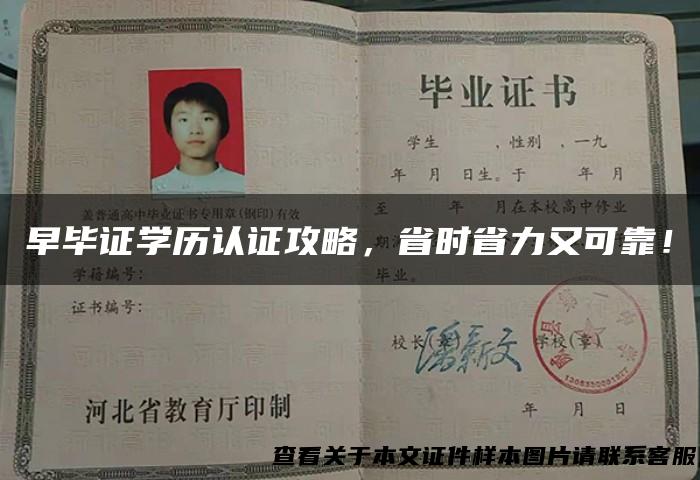 毕业证书
学生 ,性别 ,一九
年 月 日生。于 年 月
盖普通高中毕业证书专用章(钢印)有效
至 年 月在本校高中修业
早毕证学历认证攻略，省时省力又可靠！
毕业。
学籍编号：
证书编号：
校长(章)
学校(章)
河北省教育厅印制
年 月 日
查看关于本文证件样本图片请联系客服